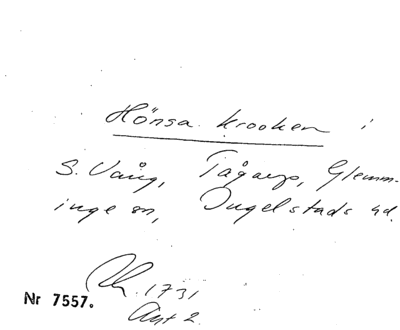 Hönsa krooken i
S. Vång, Tågarp, Glemm-
inge sn, Ingelstads hd.
1731
Nr 7557.
Akt 2.